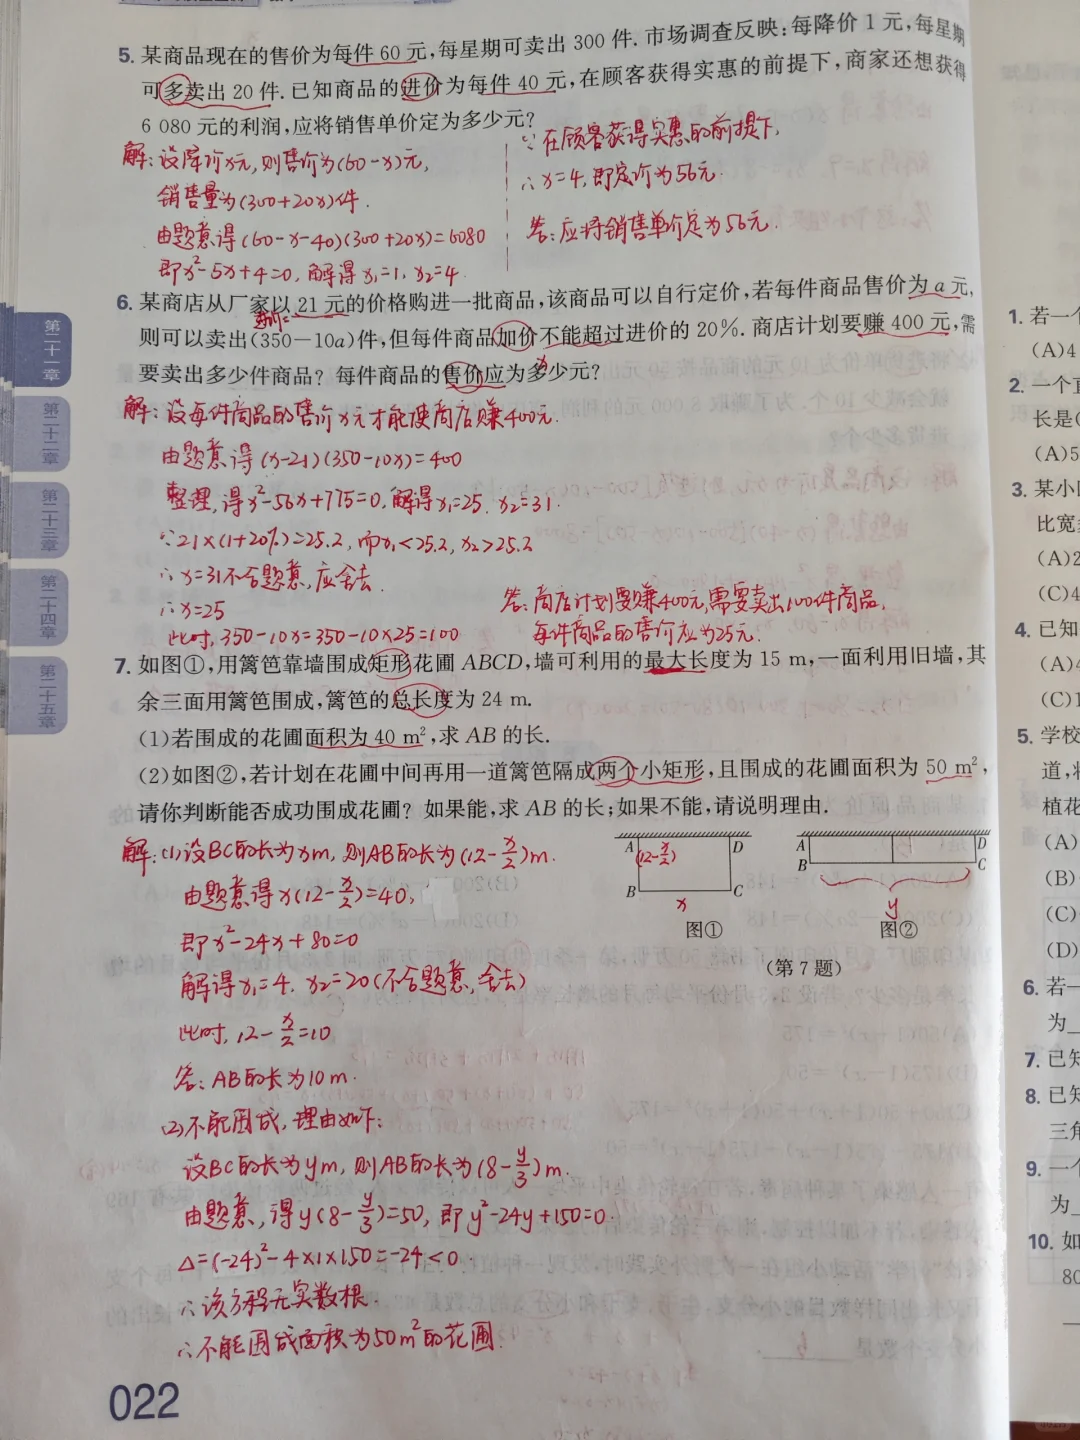 5. 某商品现在的售价为每件 60 元,每星期可卖出 300 件. 市场调查反映:每降价 1 元,每星期
可多卖出 20 件. 已知商品的进价为每件 40 元,在顾客获得实惠的前提下,商家还想获得
6 080 元的利润,应将销售单价定为多少元?
解:设降价x元,则售价为(60-x)元,
销售量为(300+20x)件.
由题意得(60-x-40)(300+20x)=6080
即x²-5x+4=0,解得x₁=1,x₂=4.
∵在顾客获得实惠的前提下,
∴x=4,即定价为56元.
答:应将销售单价定为56元.
6. 某商店从厂家以 21 元的价格购进一批商品,该商品可以自行定价,若每件商品售价为 a 元,
进价=
则可以卖出(350-10a)件,但每件商品加价不能超过进价的 20%. 商店计划要赚 400 元,需
x
要卖出多少件商品? 每件商品的售价应为多少元?
解:设每件商品的售价x元才能使商店赚400元.
由题意得(x-21)(350-10x)=400
整理,得x²-56x+775=0,解得x₁=25. x₂=31.
∵21×(1+20%)=25.2,而x₁<25.2,x₂>25.2
∴x=31不合题意,应舍去.
∴x=25
此时,350-10x=350-10×25=100
答:商店计划要赚400元,需要卖出100件商品,
每件商品的售价应为25元.
7. 如图①,用篱笆靠墙围成矩形花圃 ABCD,墙可利用的最大长度为 15 m,一面利用旧墙,其
余三面用篱笆围成,篱笆的总长度为 24 m.
(1)若围成的花圃面积为 40 m²,求 AB 的长.
(2)如图②,若计划在花圃中间再用一道篱笆隔成两个小矩形,且围成的花圃面积为 50 m²,
请你判断能否成功围成花圃? 如果能,求 AB 的长;如果不能,请说明理由.
解:(1)设BC的长为xm,则AB的长为(12-x/2)m.
由题意得x(12-x/2)=40,
即x²-24x+80=0
解得x₁=4. x₂=20(不合题意,舍去)
此时,12-x/2=10
答:AB的长为10m.
(2)不能围成,理由如下:
设BC的长为ym,则AB的长为(8-y/3)m.
由题意,得y(8-y/3)=50,即y²-24y+150=0.
Δ=(-24)²-4×1×150=-24<0.
∴该方程无实数根.
∴不能围成面积为50m²的花圃.
A D
(12-x/2)
B C
x
图①
A D
B C
y
图②
(第 7 题)
022
第二十一章
第二十二章
第二十三章
第二十四章
第二十五章
1. 若一个
(A)4
2. 一个直
长是(
(A)5
3. 某小
比宽
(A)2
(C)4
4. 已知
(A)
(C)1
5. 学校
道,将
植花
(A)
(B)
(C)
(D)
6. 若一
为
7. 已知
8. 已知
三角
9. 一个
为
10. 如
80